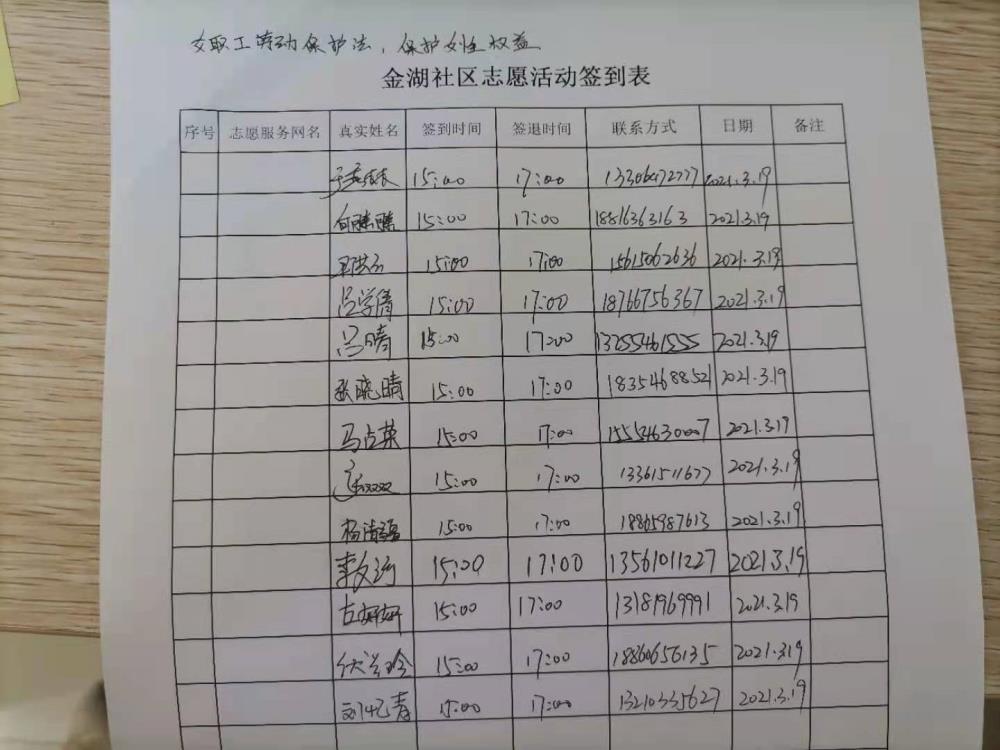 女职工劳动保护法，保护女性权益
金湖社区志愿活动签到表
序号 志愿服务网名 真实姓名 签到时间 签退时间 联系方式 日期 备注
15:00 17:00 2021.3.19
15:00 17:00 18816363163 2021.3.19
15:00 17:00 15615062636 2021.3.19
吕学倩 15:00 17:00 18766756367 2021.3.19
冯晴 15:00 17:00 13255461555 2021.3.19
张晓晴 15:00 17:00 18354688521 2021.3.19
马占英 15:00 17:00 15554630007 2021.3.19
15:00 17:00 13361511677 2021.3.19
15:00 17:00 18865987613 2021.3.19
李文 15:00 17:00 13561011227 2021.3.19
15:00 17:00 13181969991 2021.3.19
15:00 17:00 18860656135 2021.3.19
刘忆青 15:00 17:00 13210335627 2021.3.19